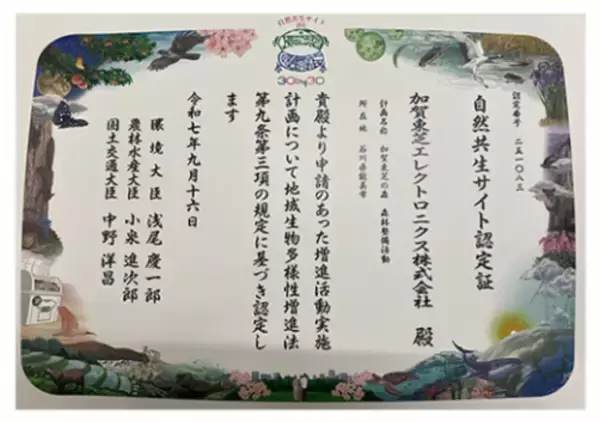 自然共生サイト
認定
30by30
認定番号 二五一〇八三
自然共生サイト認定証
加賀東芝エレクトロニクス株式会社 殿
計画名称 加賀東芝の森 森林整備活動
所在地 石川県能美市
貴殿より申請のあった増進活動実施
計画について地域生物多様性増進法
第九条第三項の規定に基づき認定し
ます
令和七年九月十六日
環境大臣 浅尾 慶一郎
農林水産大臣 小泉 進次郎
国土交通大臣 中野 洋昌